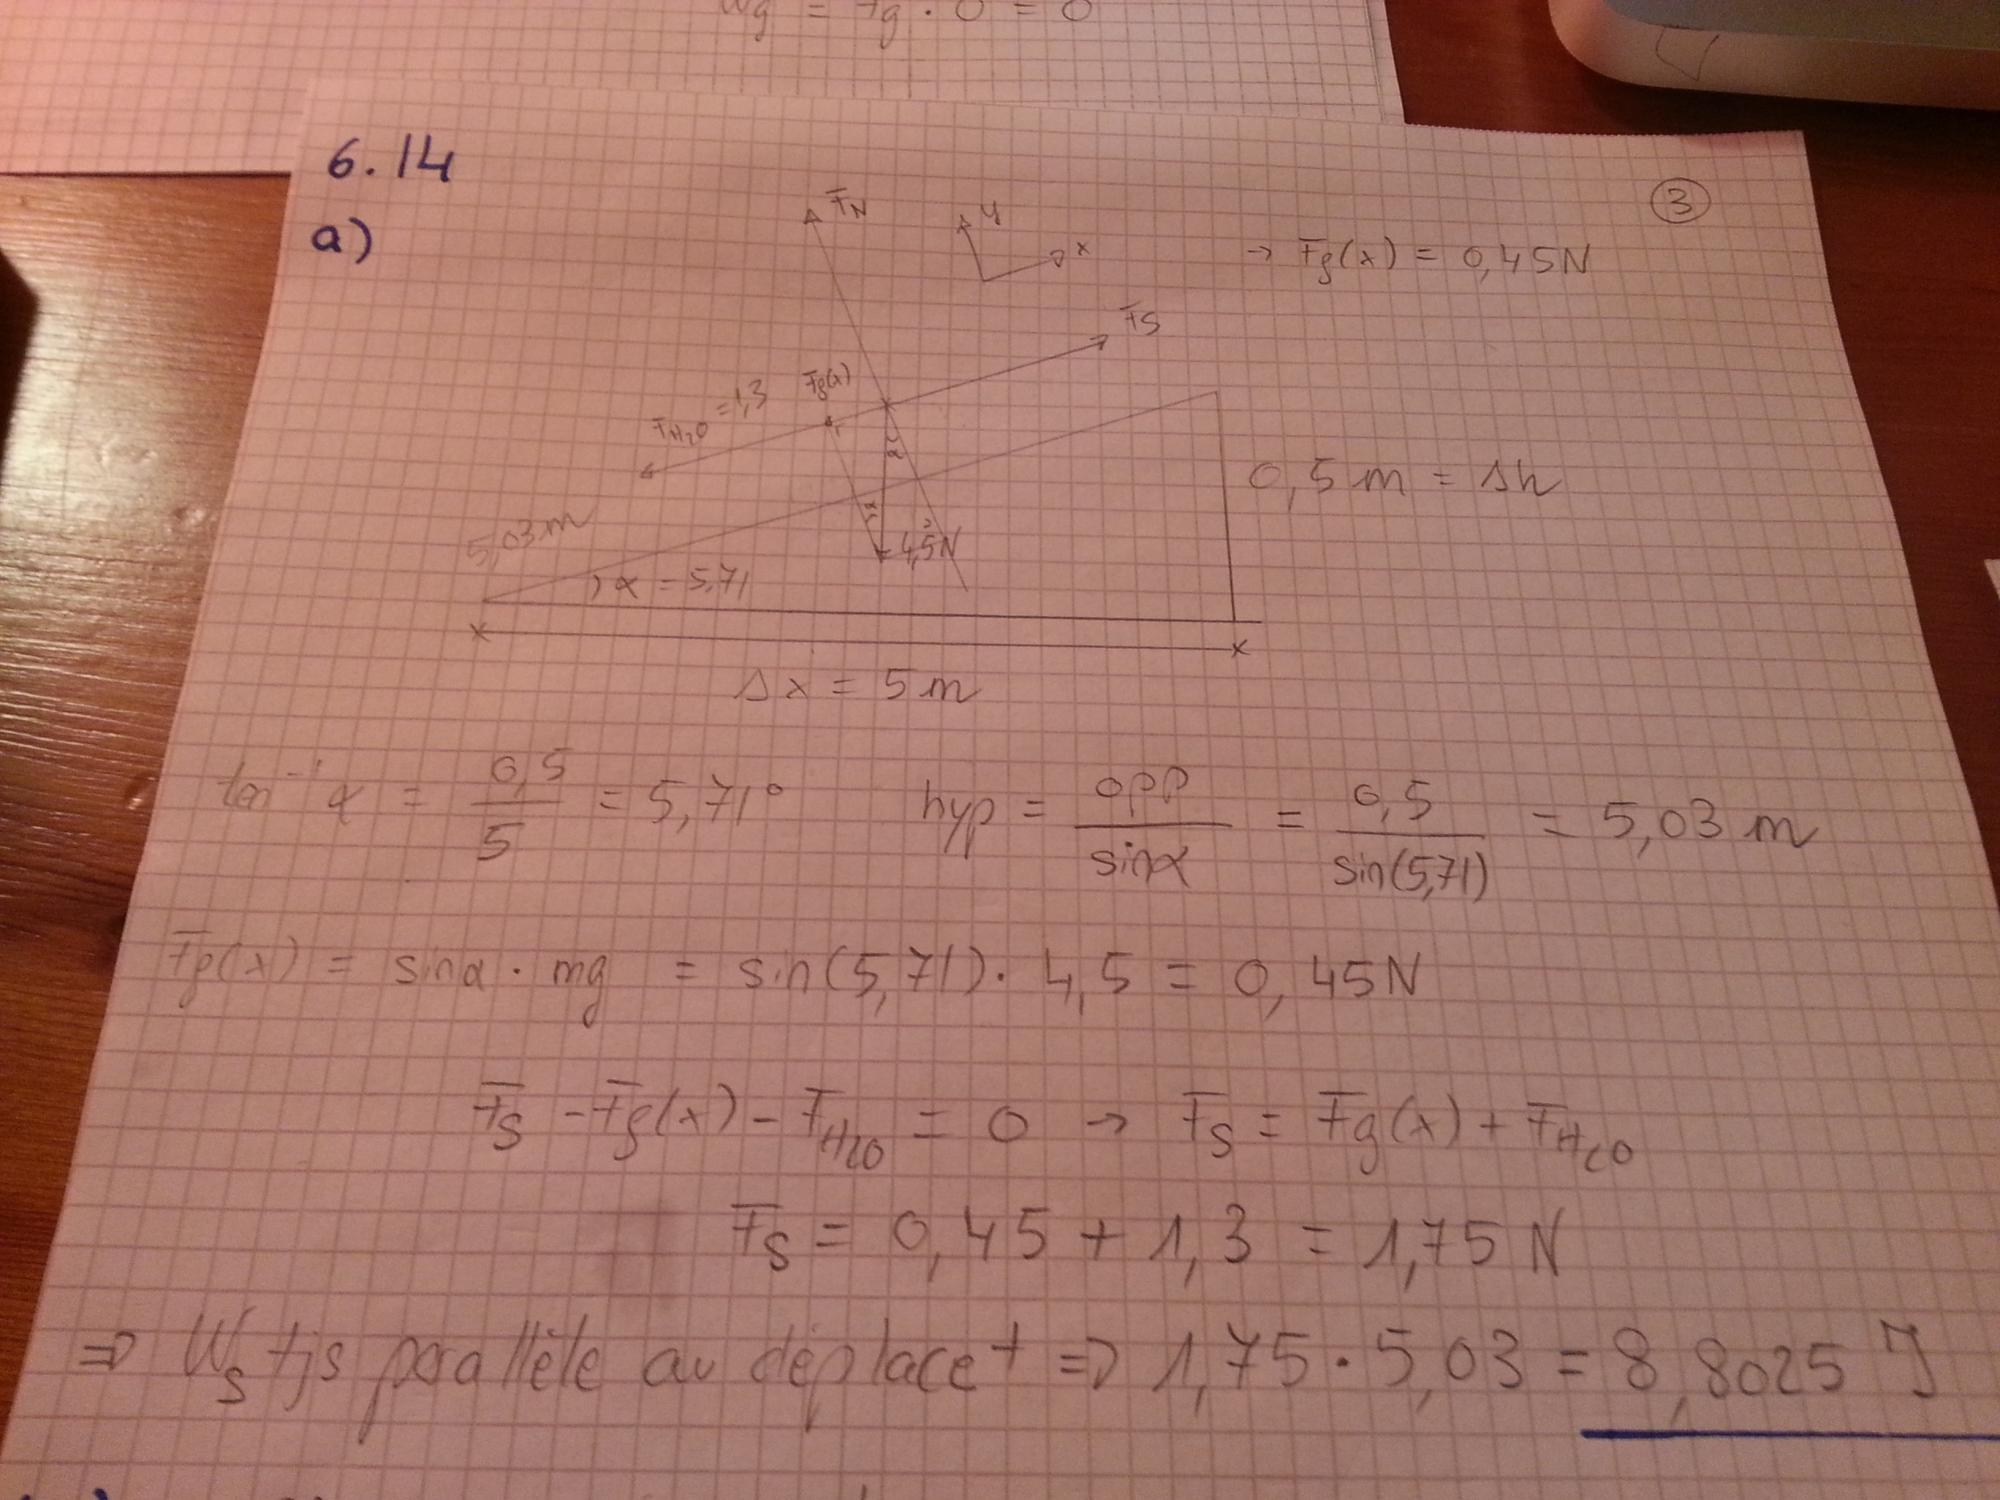 Wg = Fg · 0 = 0
6.14
③
a)
FN
y
x
→ Fg(x) = 0,45N
FS
Fg(x)
FH₂O = 1,3
α
0,5 m = Δh
5,03 m
α
4,5N
α = 5,71
Δx = 5 m
tan⁻¹ α = 0,5/5 = 5,71° hyp = opp/sinα = 0,5/sin(5,71) = 5,03 m
Fg(x) = sinα · mg = sin(5,71) · 4,5 = 0,45N
FS - Fg(x) - FH₂O = 0 → FS = Fg(x) + FH₂O
FS = 0,45 + 1,3 = 1,75 N
⇒ WS tjs parallèle au déplacet ⇒ 1,75 · 5,03 = 8,8025 J